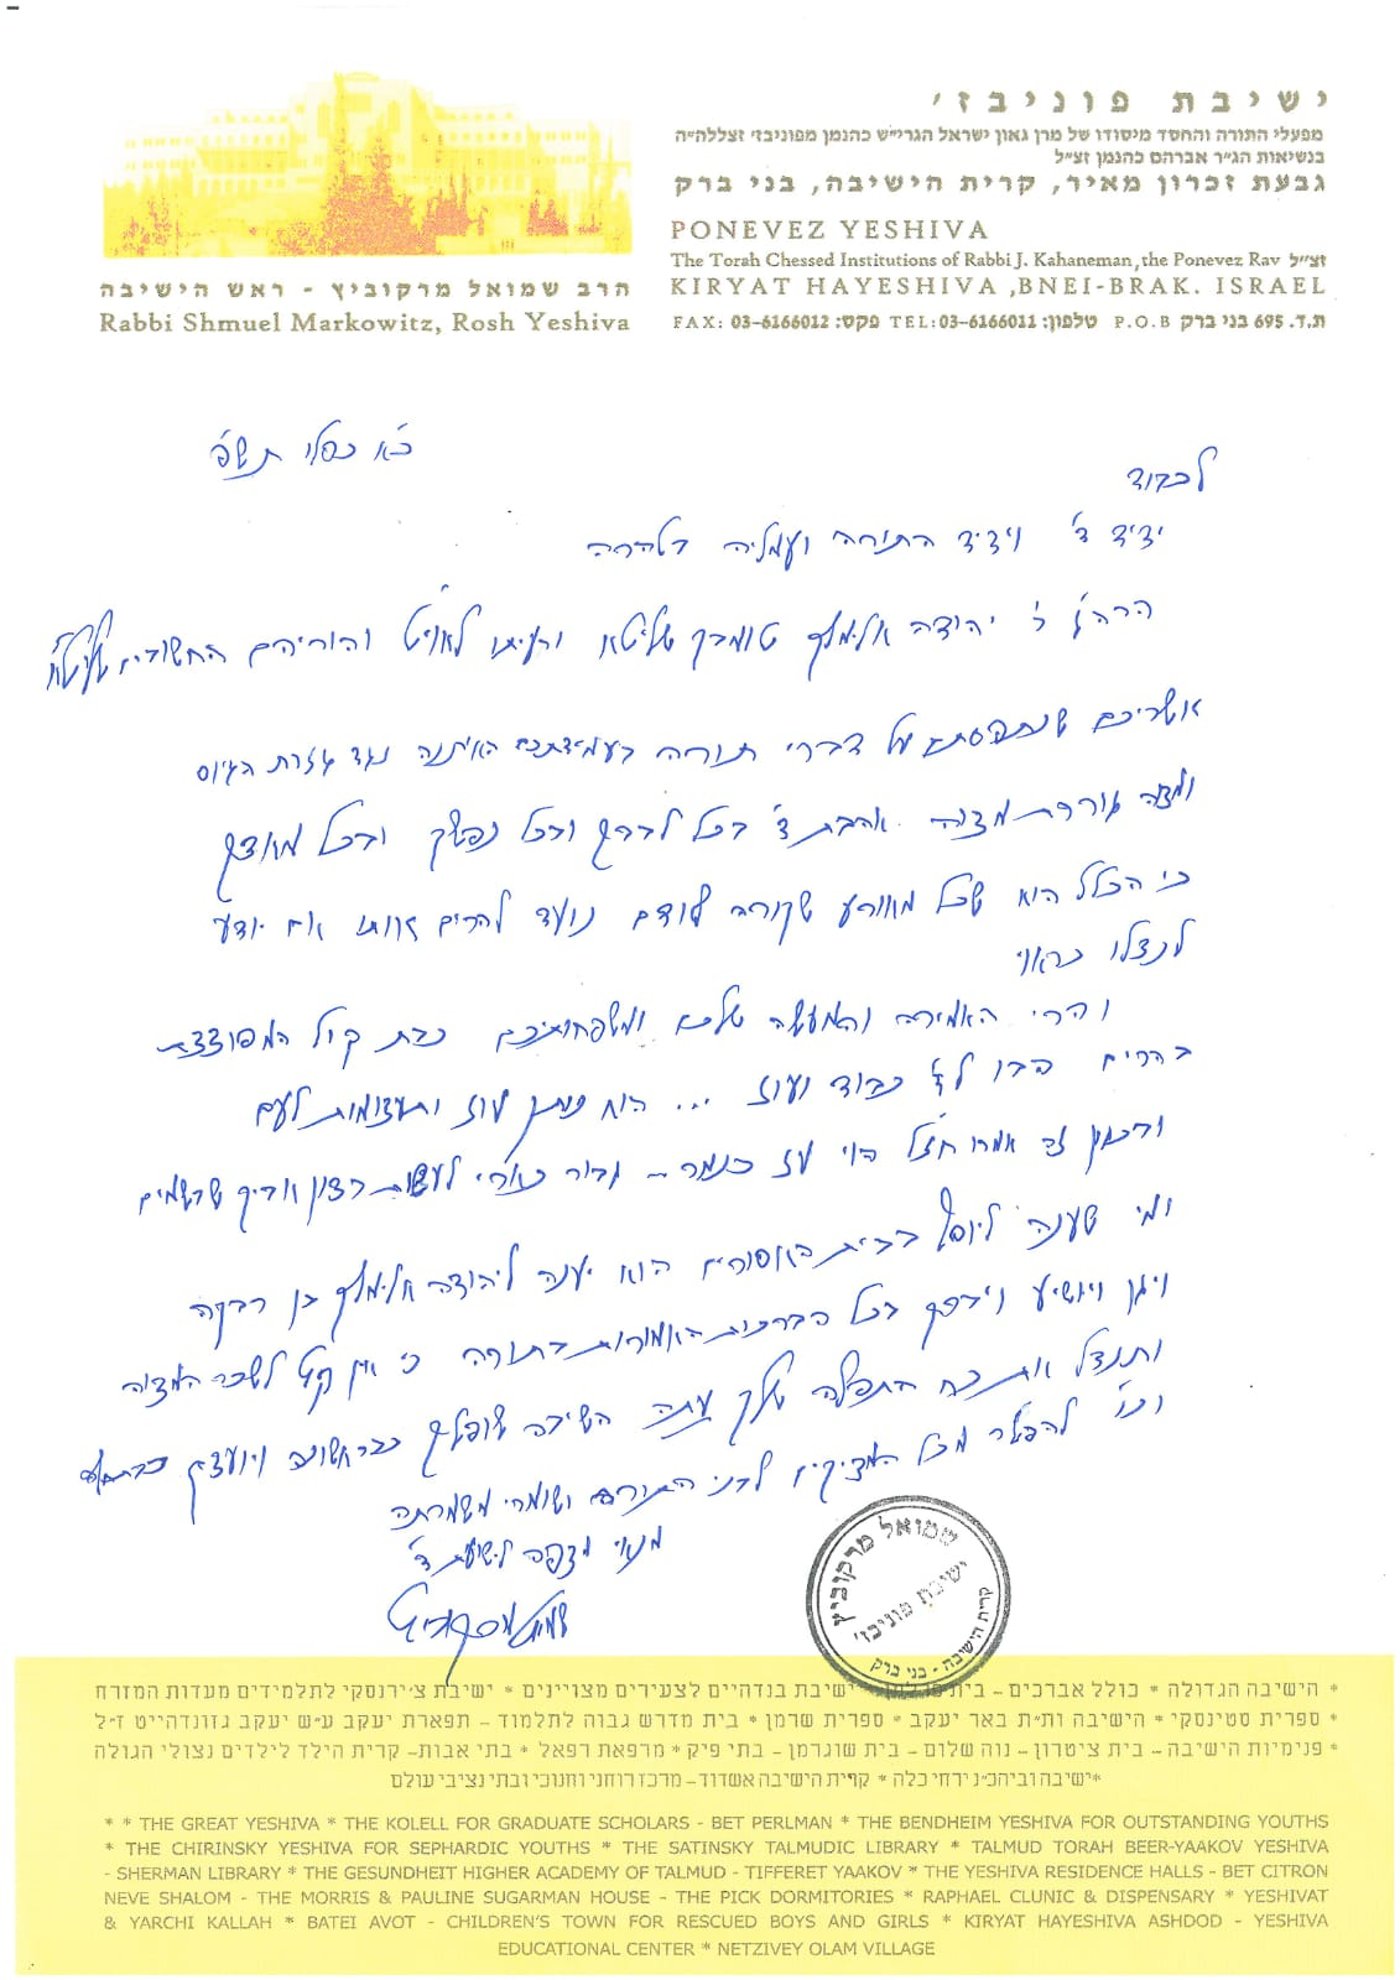 ישיבת פוניבז׳
מפעלי התורה והחסד מיסודו של מרן גאון ישראל הגרי״ש כהנמן מפוניבז׳ זצללה״ה
בנשיאות הג״ר אברהם כהנמן זצ״ל
גבעת זכרון מאיר, קרית הישיבה, בני ברק
PONEVEZ YESHIVA
The Torah Chessed Institutions of Rabbi J. Kahaneman, the Ponevez Rav זצ״ל
KIRYAT HAYESHIVA ,BNEI-BRAK. ISRAEL
FAX: 03-6166012 :פקס TEL:03-6166011 :טלפון P.O.B ת.ד. 695 בני ברק
הרב שמואל מרקוביץ - ראש הישיבה
Rabbi Shmuel Markowitz, Rosh Yeshiva
כ״א כסלו תש״פ
לכבוד
ידיד ד׳ וידיד התורה ועמליה בטהרה
הרה״ג ר׳ יהודה אלימלך שליטא ורעיתו לאוי״ט והוריהם החשובים שליט״א
אשריכם שנתפסתם על דברי תורה בעמידתכם האיתנה נגד גזרת הגיוס
ומצוה גוררת מצוה אהבת ד׳ בכל לבבך ובכל נפשך ובכל מאודך
כי הכלל הוא שכל מאורע שקורה לאדם נועד להרים אותו אם יודע
לנצלו כראוי
והרי האמירה והמעשה שלכם ומשפחותיכם כבת קול המפוצצת
בהרים הבו לד׳ כבוד ועוז ... הוא נותן עוז ותעצומות לעם
ובכגון זה אמרו חז״ל הוי עז כנמר - גבור כארי לעשות רצון אביך שבשמים
ומי שענה ליוסף בבית האסורים הוא יענה ליהודה אלימלך בן רבקה
ויגן ויושיע ויברכך בכל הברכות האמורות בתורה כי אין קץ לשכר המצוה
ותגדל את כח התפלה שלך עתה השיבה שופטיך כבראשונה ויועציך כבתחלה
וכו׳ להפטר מכל המציקים לבני התורה ושומרי משמרתה
מנאי מצפה לישועת ד׳
שמואל מרקוביץ
שמואל מרקוביץ
ישיבת פוניבז׳
קרית הישיבה - בני ברק
* הישיבה הגדולה * כולל אברכים - בית ישיבת בנדהיים לצעירים מצויינים * ישיבת צ׳ירנסקי לתלמידים מעדות המזרח
* ספרית סטינסקי * הישיבה ות״ת באר יעקב * ספרית שרמן * בית מדרש גבוה לתלמוד - תפארת יעקב ע״ש יעקב גזונדהייט ז״ל
* פנימיות הישיבה - בית ציטרון - נוה שלום - בית שוגרמן - בתי פיק * מרפאת רפאל * בתי אבות - קרית הילד לילדים נצולי הגולה
*ישיבה וביהכ״נ ירחי כלה * קרית הישיבה אשדוד - מרכז רוחני וחנוכי ובתי נציבי עולם
* * THE GREAT YESHIVA * THE KOLELL FOR GRADUATE SCHOLARS - BET PERLMAN * THE BENDHEIM YESHIVA FOR OUTSTANDING YOUTHS
* THE CHIRINSKY YESHIVA FOR SEPHARDIC YOUTHS * THE SATINSKY TALMUDIC LIBRARY * TALMUD TORAH BEER-YAAKOV YESHIVA
- SHERMAN LIBRARY * THE GESUNDHEIT HIGHER ACADEMY OF TALMUD - TIFFERET YAAKOV * THE YESHIVA RESIDENCE HALLS - BET CITRON
NEVE SHALOM - THE MORRIS & PAULINE SUGARMAN HOUSE - THE PICK DORMITORIES * RAPHAEL CLUNIC & DISPENSARY * YESHIVAT
& YARCHI KALLAH * BATEI AVOT - CHILDREN'S TOWN FOR RESCUED BOYS AND GIRLS * KIRYAT HAYESHIVA ASHDOD - YESHIVA
EDUCATIONAL CENTER * NETZIVEY OLAM VILLAGE